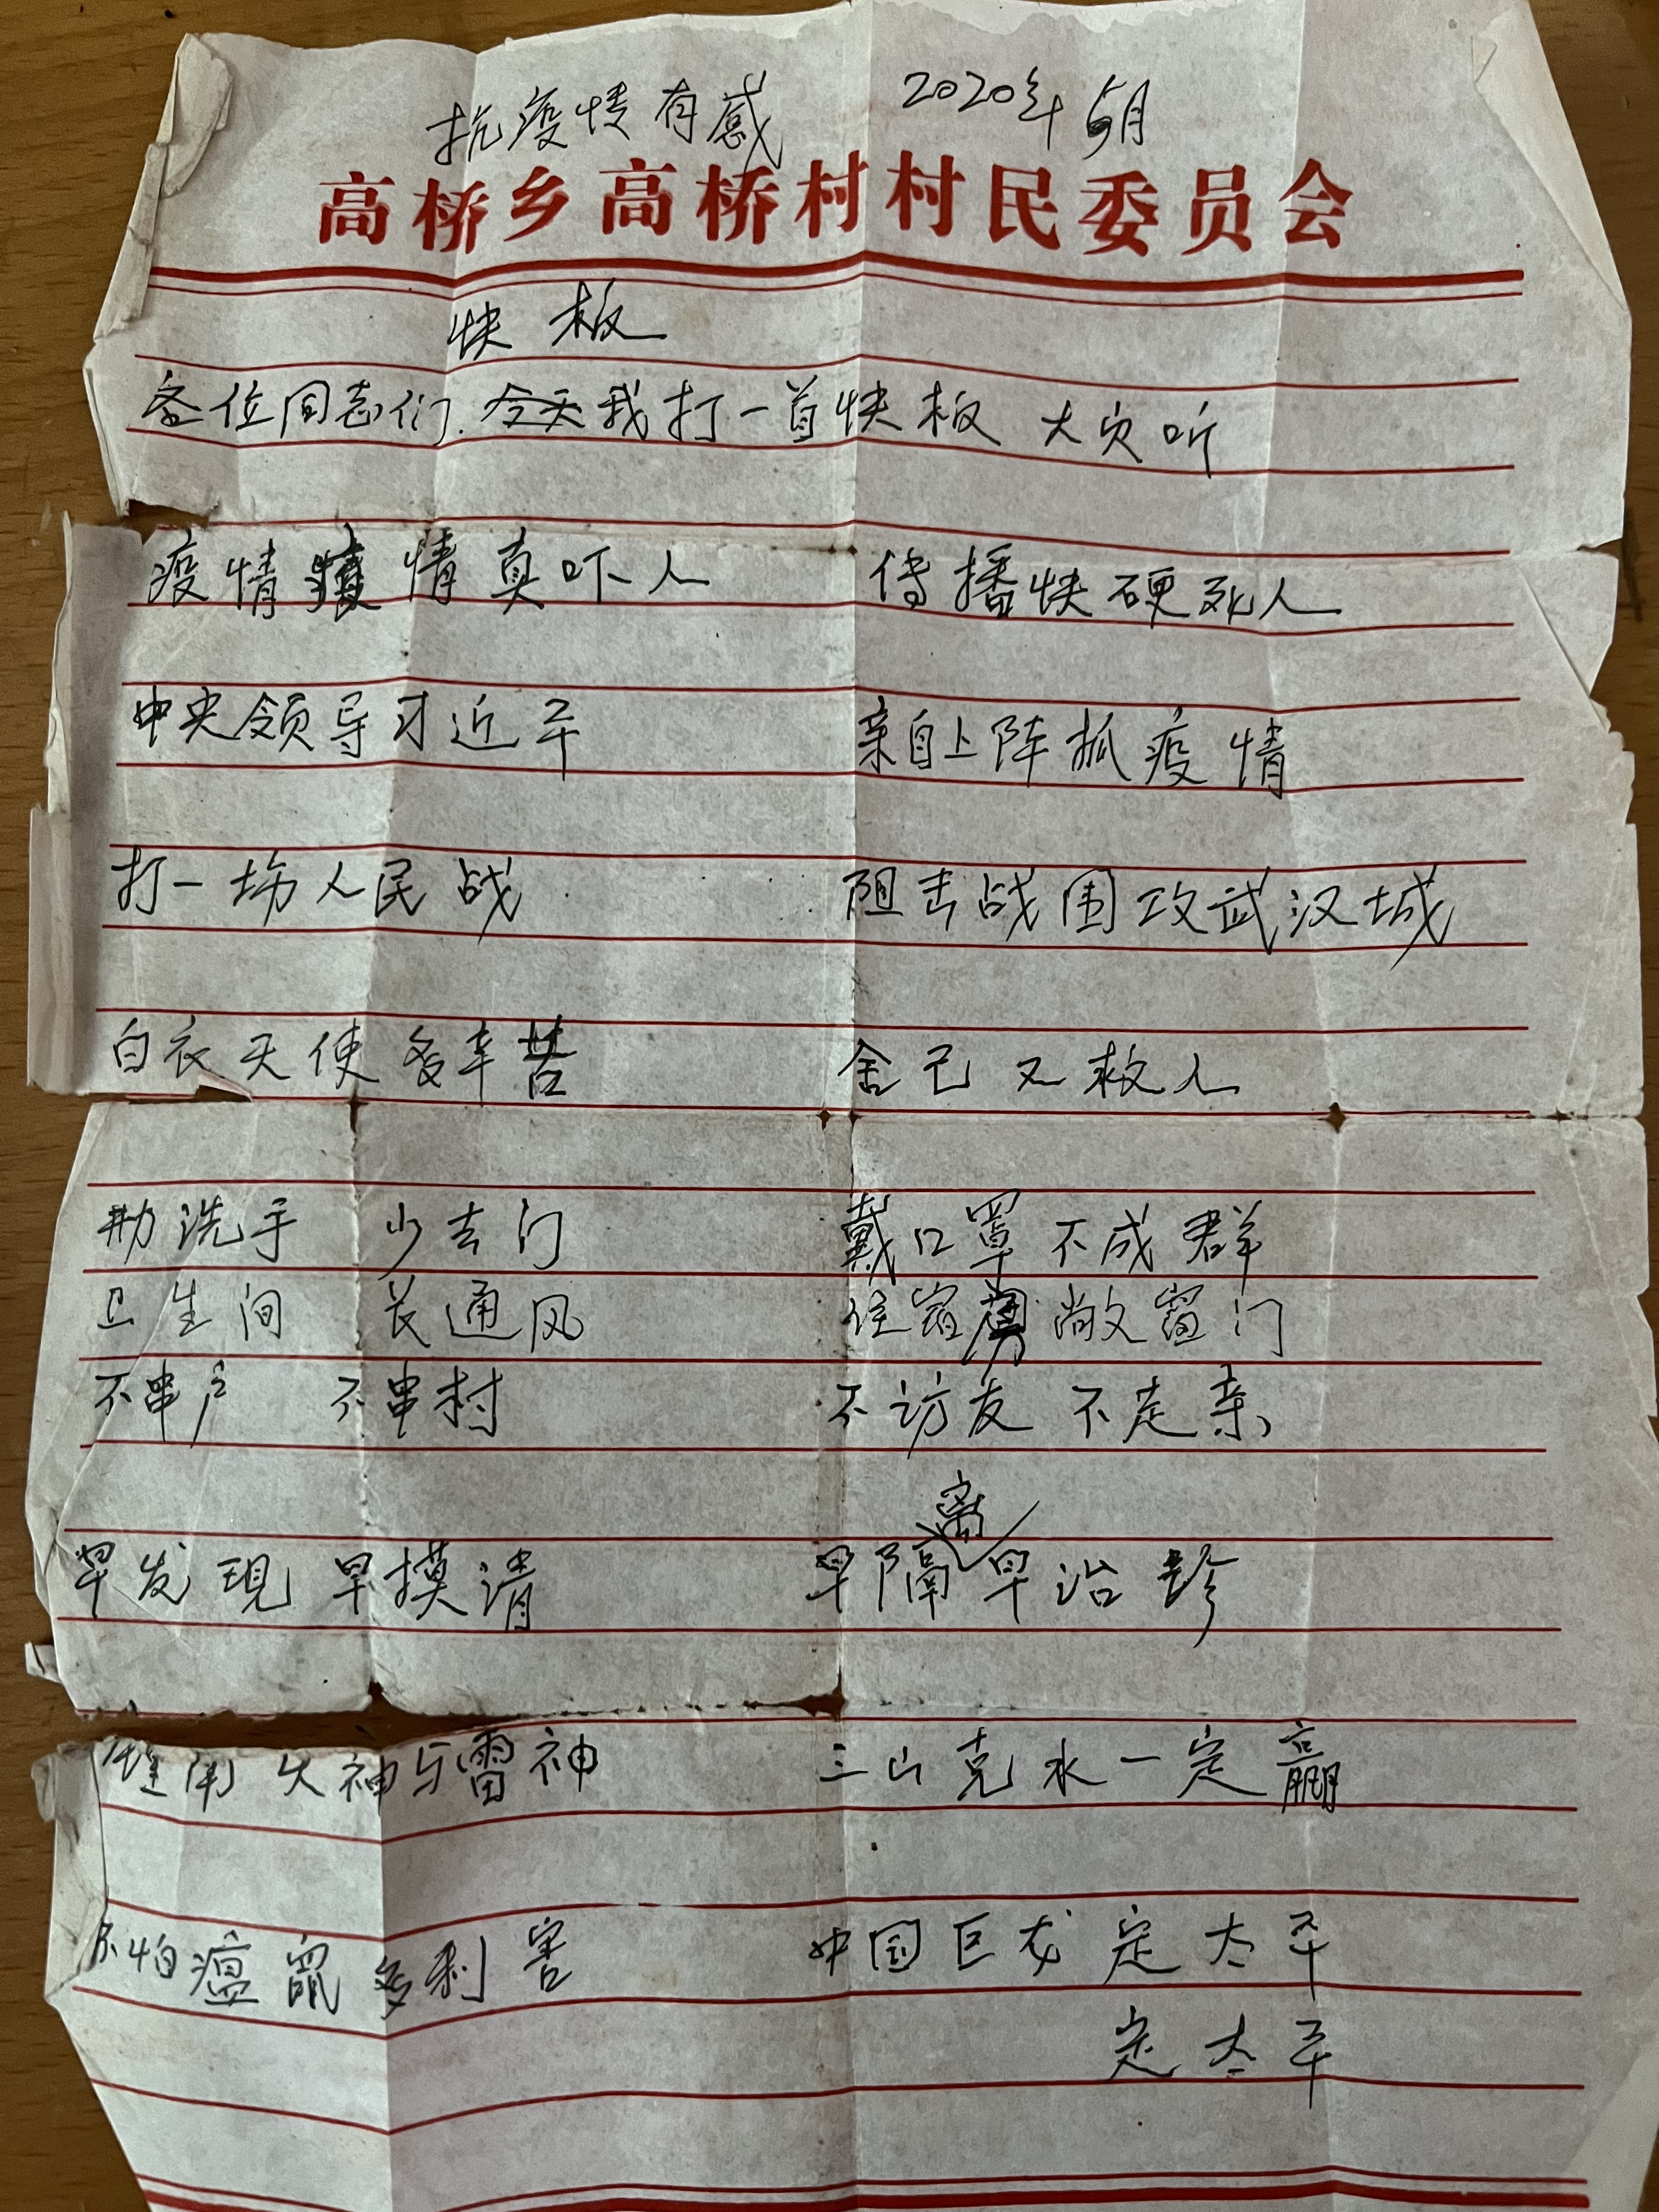 抗疫情有感 2020年5月
高桥乡高桥村村民委员会
快板
各位同志们.今天我打一首快板 大家听
疫情疫情真吓人 传播快硬死人
中央领导习近平 亲自上阵抓疫情
打一场人民战 阻击战围攻武汉城
白衣天使多辛苦 舍己又救人
勤洗手 少去门 戴口罩 不成群
卫生间 长通风 住宿 敞窗门
不串户 不串村 不访友 不走亲
早发现 早摸清 早隔离早治诊
火神与雷神 三山克水一定赢
不怕瘟鼠多利害 中国巨龙定太平
定太平